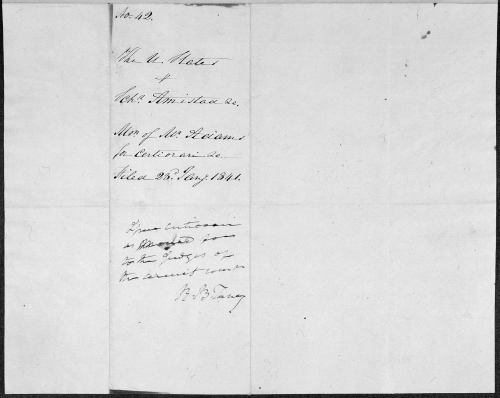 No. 42.
The U. States
v
Schr. Amistad &c.
Mon. of Mr. Adams
for Certiorari &c.
Filed 26 Jany. 1841.
certiorari
as for
to the Judges of
the circuit court
R B Taney